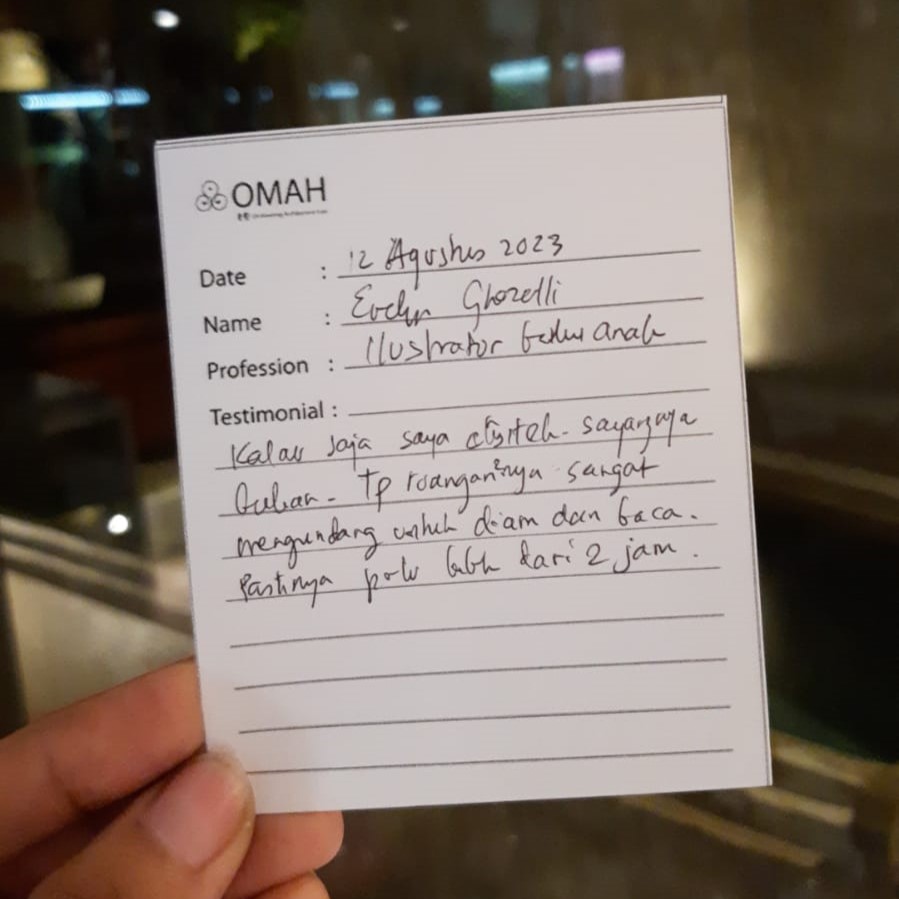 OMAH
Date : 12 Agustus 2023
Name : Evelyn Ghozalli
Profession : Ilustrator buku anak
Testimonial :
Kalau saja saya arsitek. sayangnya
bukan. Tp ruangan²nya sangat
mengundang untuk diam dan baca.
Pastinya perlu lebih dari 2 jam.